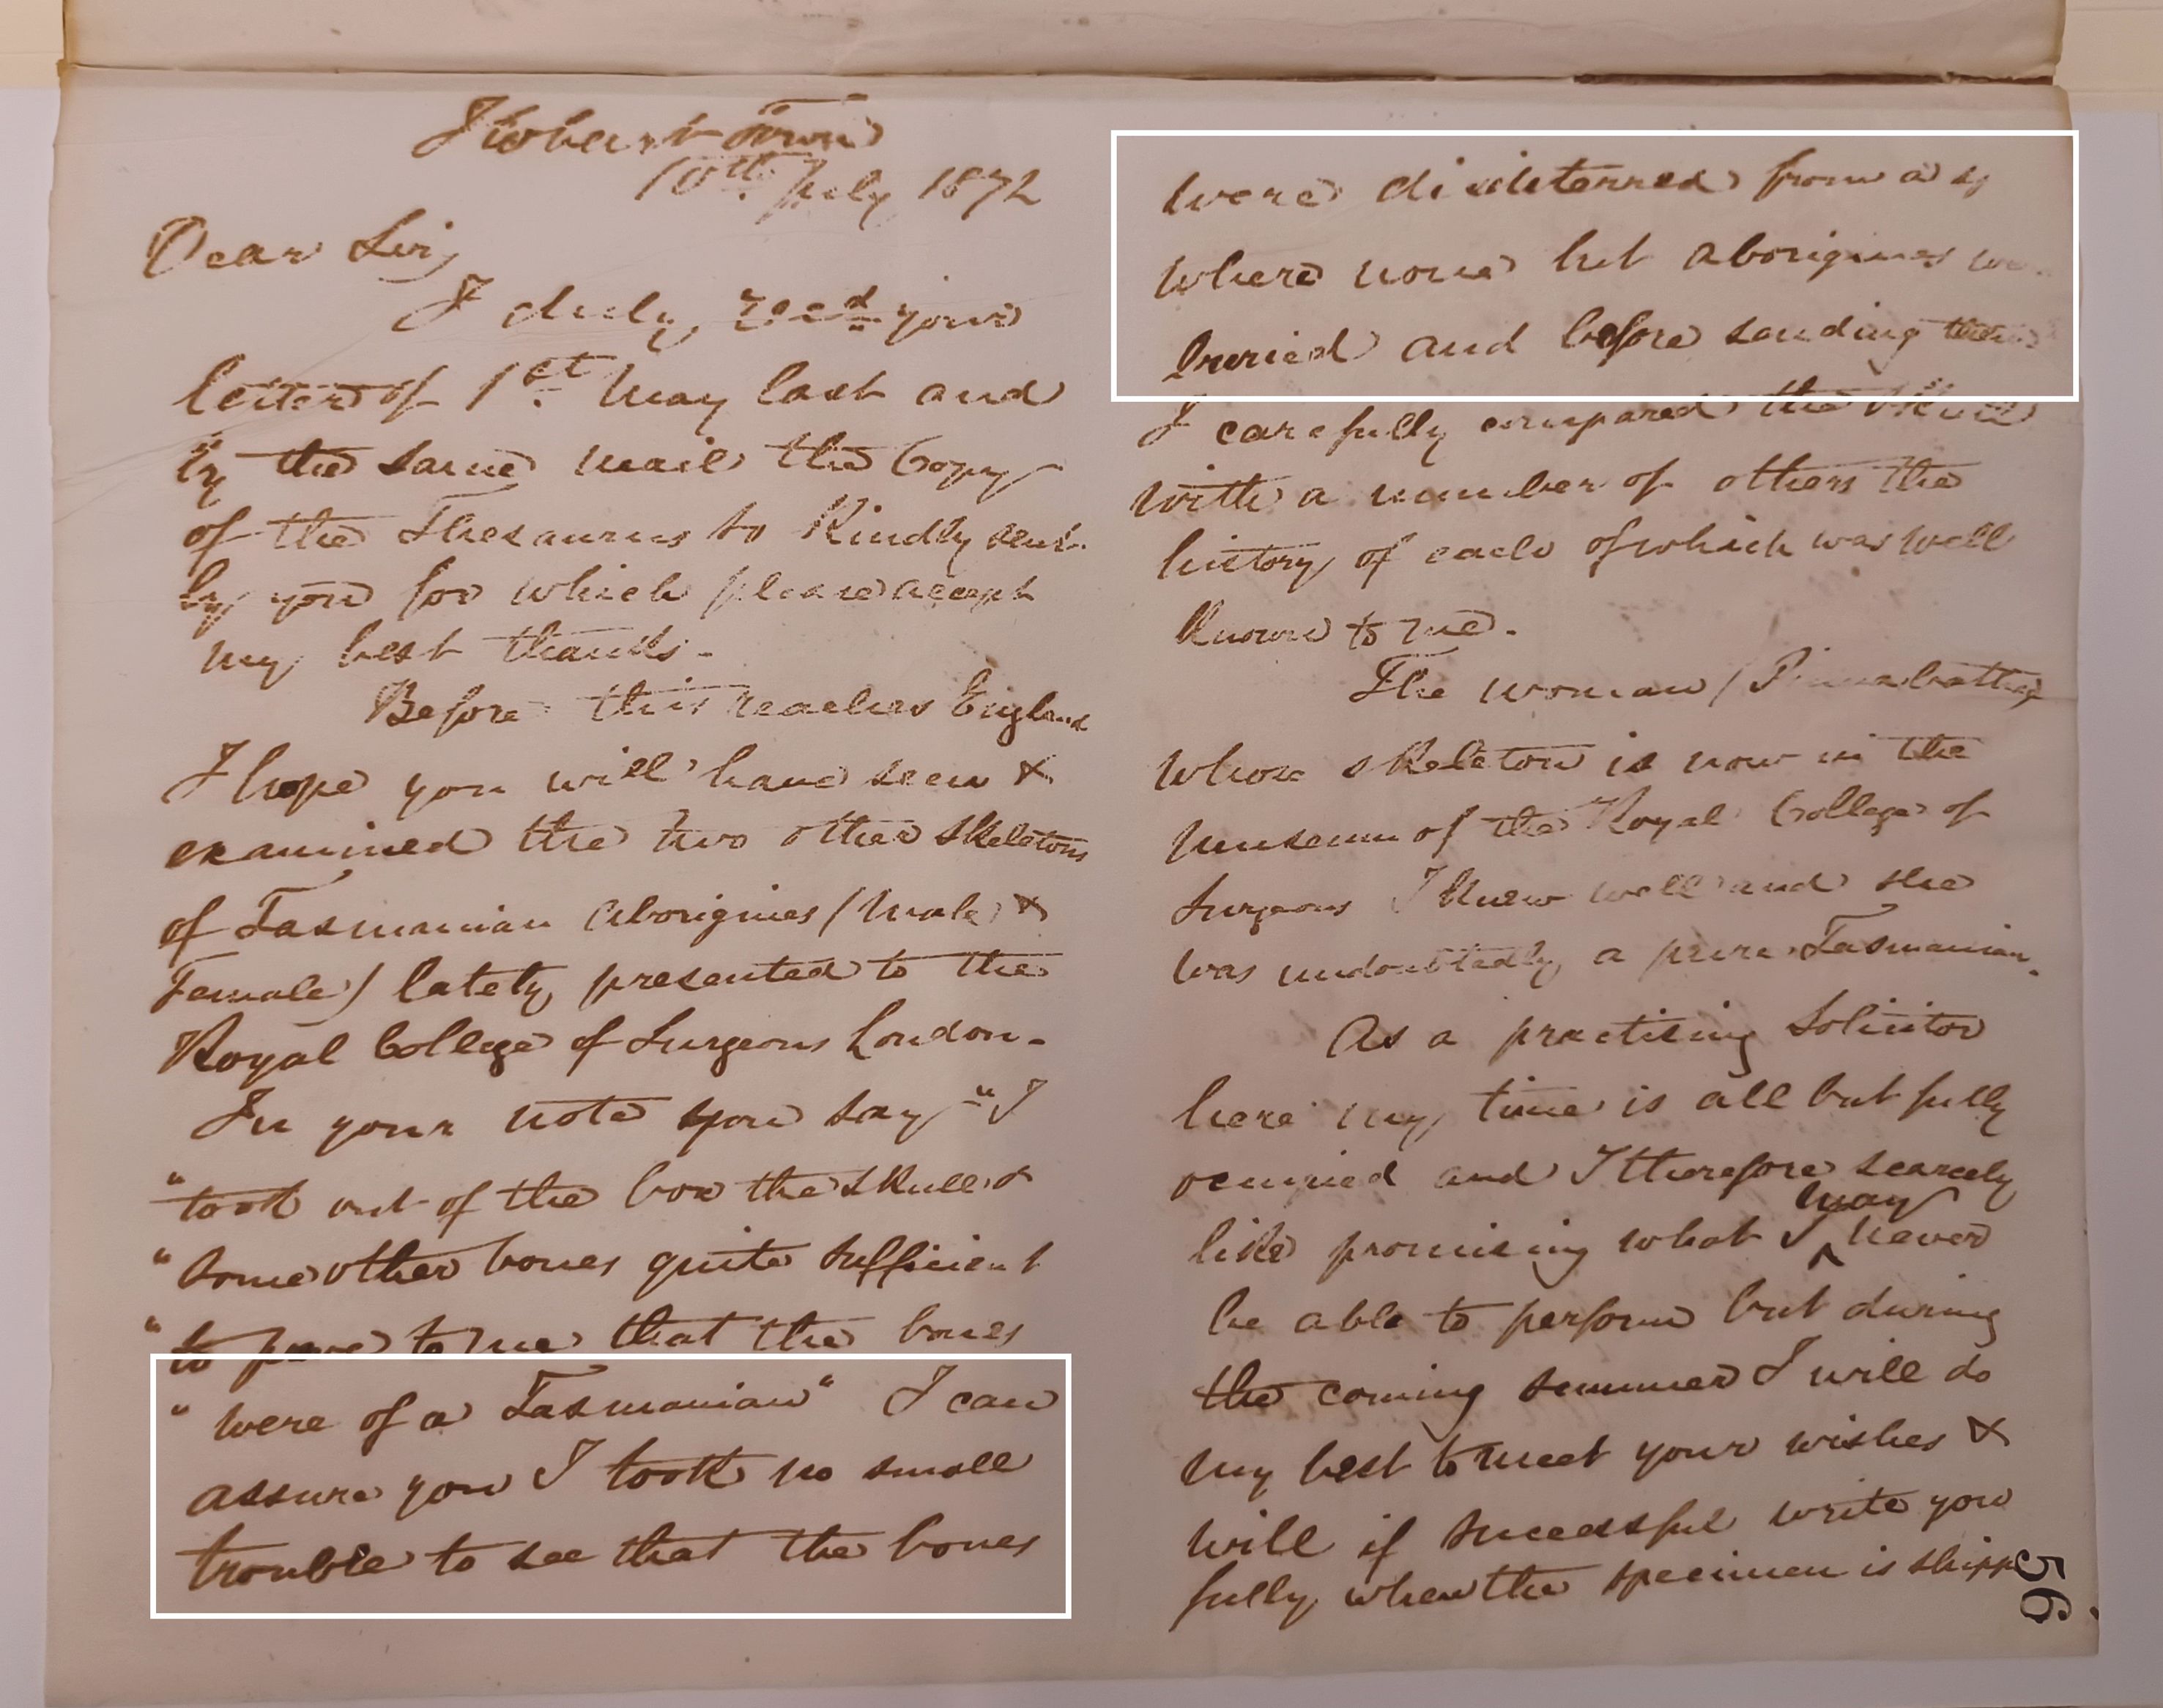 Hobart Town
10th. July 1872
Dear Sir,
I duly recd your
letter of 1st. May last and
by the same mail the Copy
of the Thesaurus so Kindly sent
by you for which please accept
my best thanks -
Before this reaches England
I hope you will have seen &
examined the two other skeletons
of Tasmanian Aborigines (Male &
Female) lately presented to the
Royal College of Surgeons London -
In your note you say - "I
"took out of the box the skull &
"some other bones quite sufficient
"to prove to me that the bones
"were of a Tasmanian" I can
assure you I took no small
trouble to see that the bones
were disinterred from a
where none but aborigines
buried and before sending them
I carefully compared the skull
with a number of others the
history of each of which was well
known to me.
The woman (
whose skeleton is now in the
Museum of the Royal College of
Surgeons I knew well and she
was undoubtedly a pure Tasmanian.
As a practising Solicitor
here my time is all but fully
occupied and I therefore scarcely
may
like promising what I ^ never
be able to perform but during
the coming summer I will do
my best to meet your wishes &
will if successful write you
fully when the specimen is
56